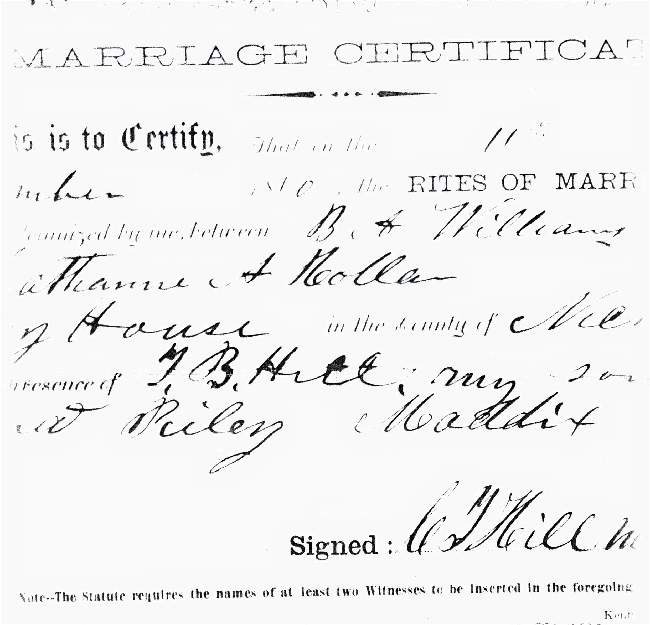 MARRIAGE CERTIFICAT
is is to Certify, That on the 11th
mber 1860, the RITES OF MARR
lemnized by me, between B A Williams
atharine A Hollan
my House in the County of Nic
presence of T. B. Hill, my son
and Riley Maddix
Signed: C T Hill
Note--The Statute requires the names of at least two Witnesses to be inserted in the foregoing